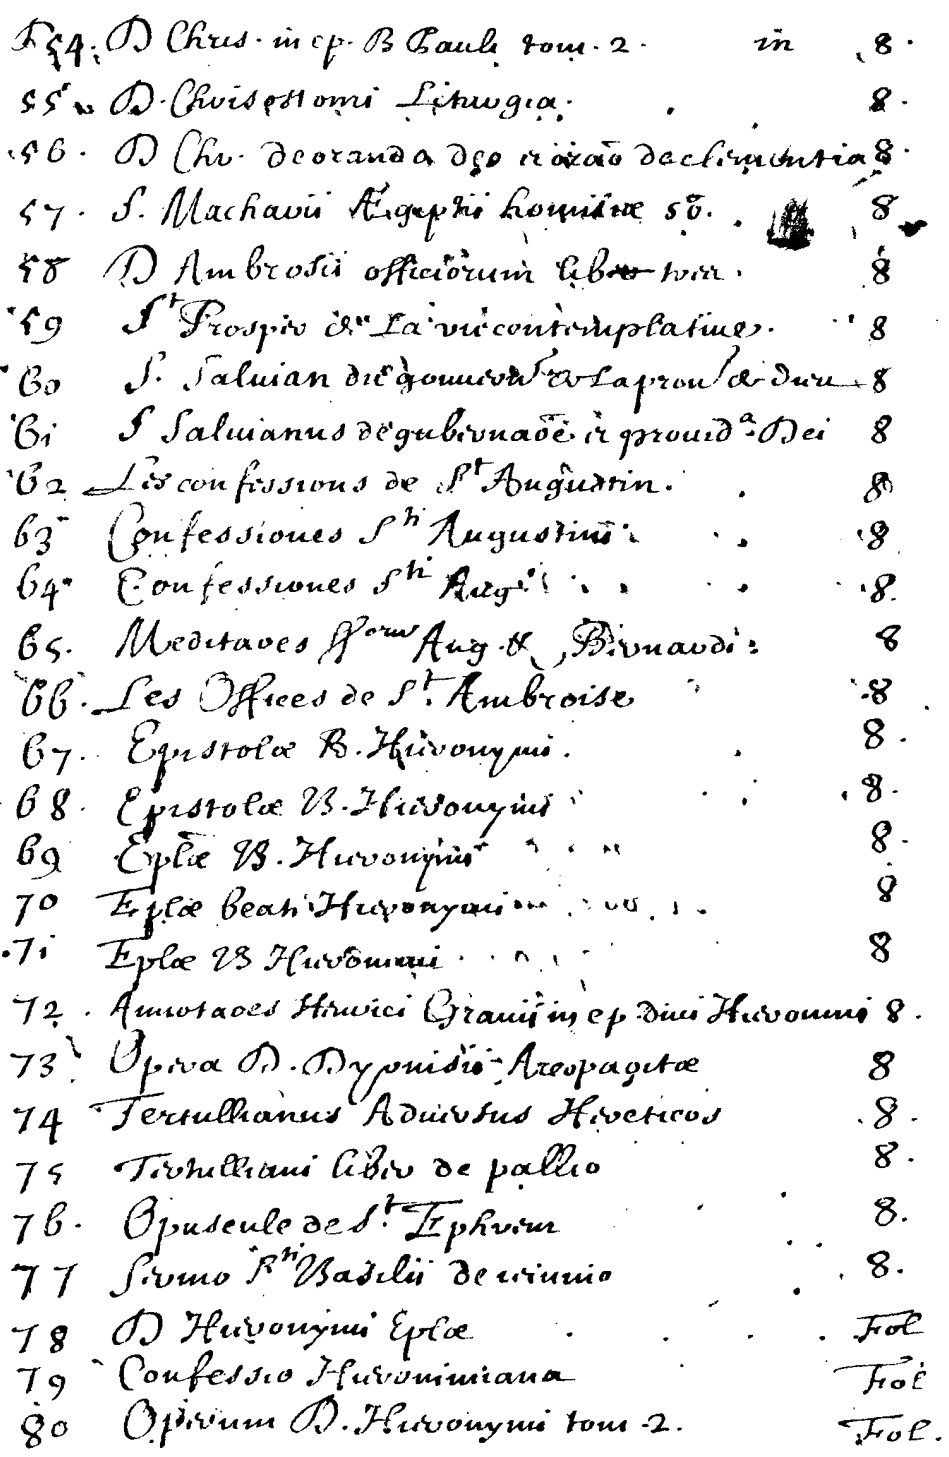 54. D Chris. in ep. B Pauli tom. 2. in 8.
55. D. Chrisostomi Liturgia. 8.
56. D Chr. de oranda deo et orao de clementia 8.
57. S. Macharii Ægyptii homiliæ 50. 8
58 D Ambrosii officiorum liber tres. 8
59 St Prosper de La vie contemplative. 8
60 S. Salvian du gouvern et La prov de dieu 8
61 S Salvianus de gubernaoe et provida Dei 8
62 Les confessions de St Augustin. 8
63 Confessiones Sti Augustini 8
64 Confessiones Sti Aug 8.
65. Meditaoes SSorum Aug. & Bernardi 8
66. Les Offices de St. Ambroise 8
67. Epistolæ B. Hieronymi. 8.
68. Epistolæ B. Hieronymi 8.
69 Eplæ B. Hieronymi 8.
70 Eplæ beati Hieronymi 8
71 Eplæ B Hieronimi 8
72. Annotaoes Henrici Gravii in ep. divi Hieronimi 8.
73 Opera D. Dyonisii Areopagitæ 8
74 Tertullianus Adversus Hereticos 8.
75 Tertulliani liber de pallio 8.
76. Opuscule de St. Ephrem 8.
77 Sermo Sti Basilii de ieiunio 8.
78 D Hieronymi Eplæ Fol
79 Confessio Hieronimiana Fol
80 Operum D. Hieronymi tom. 2. Fol.